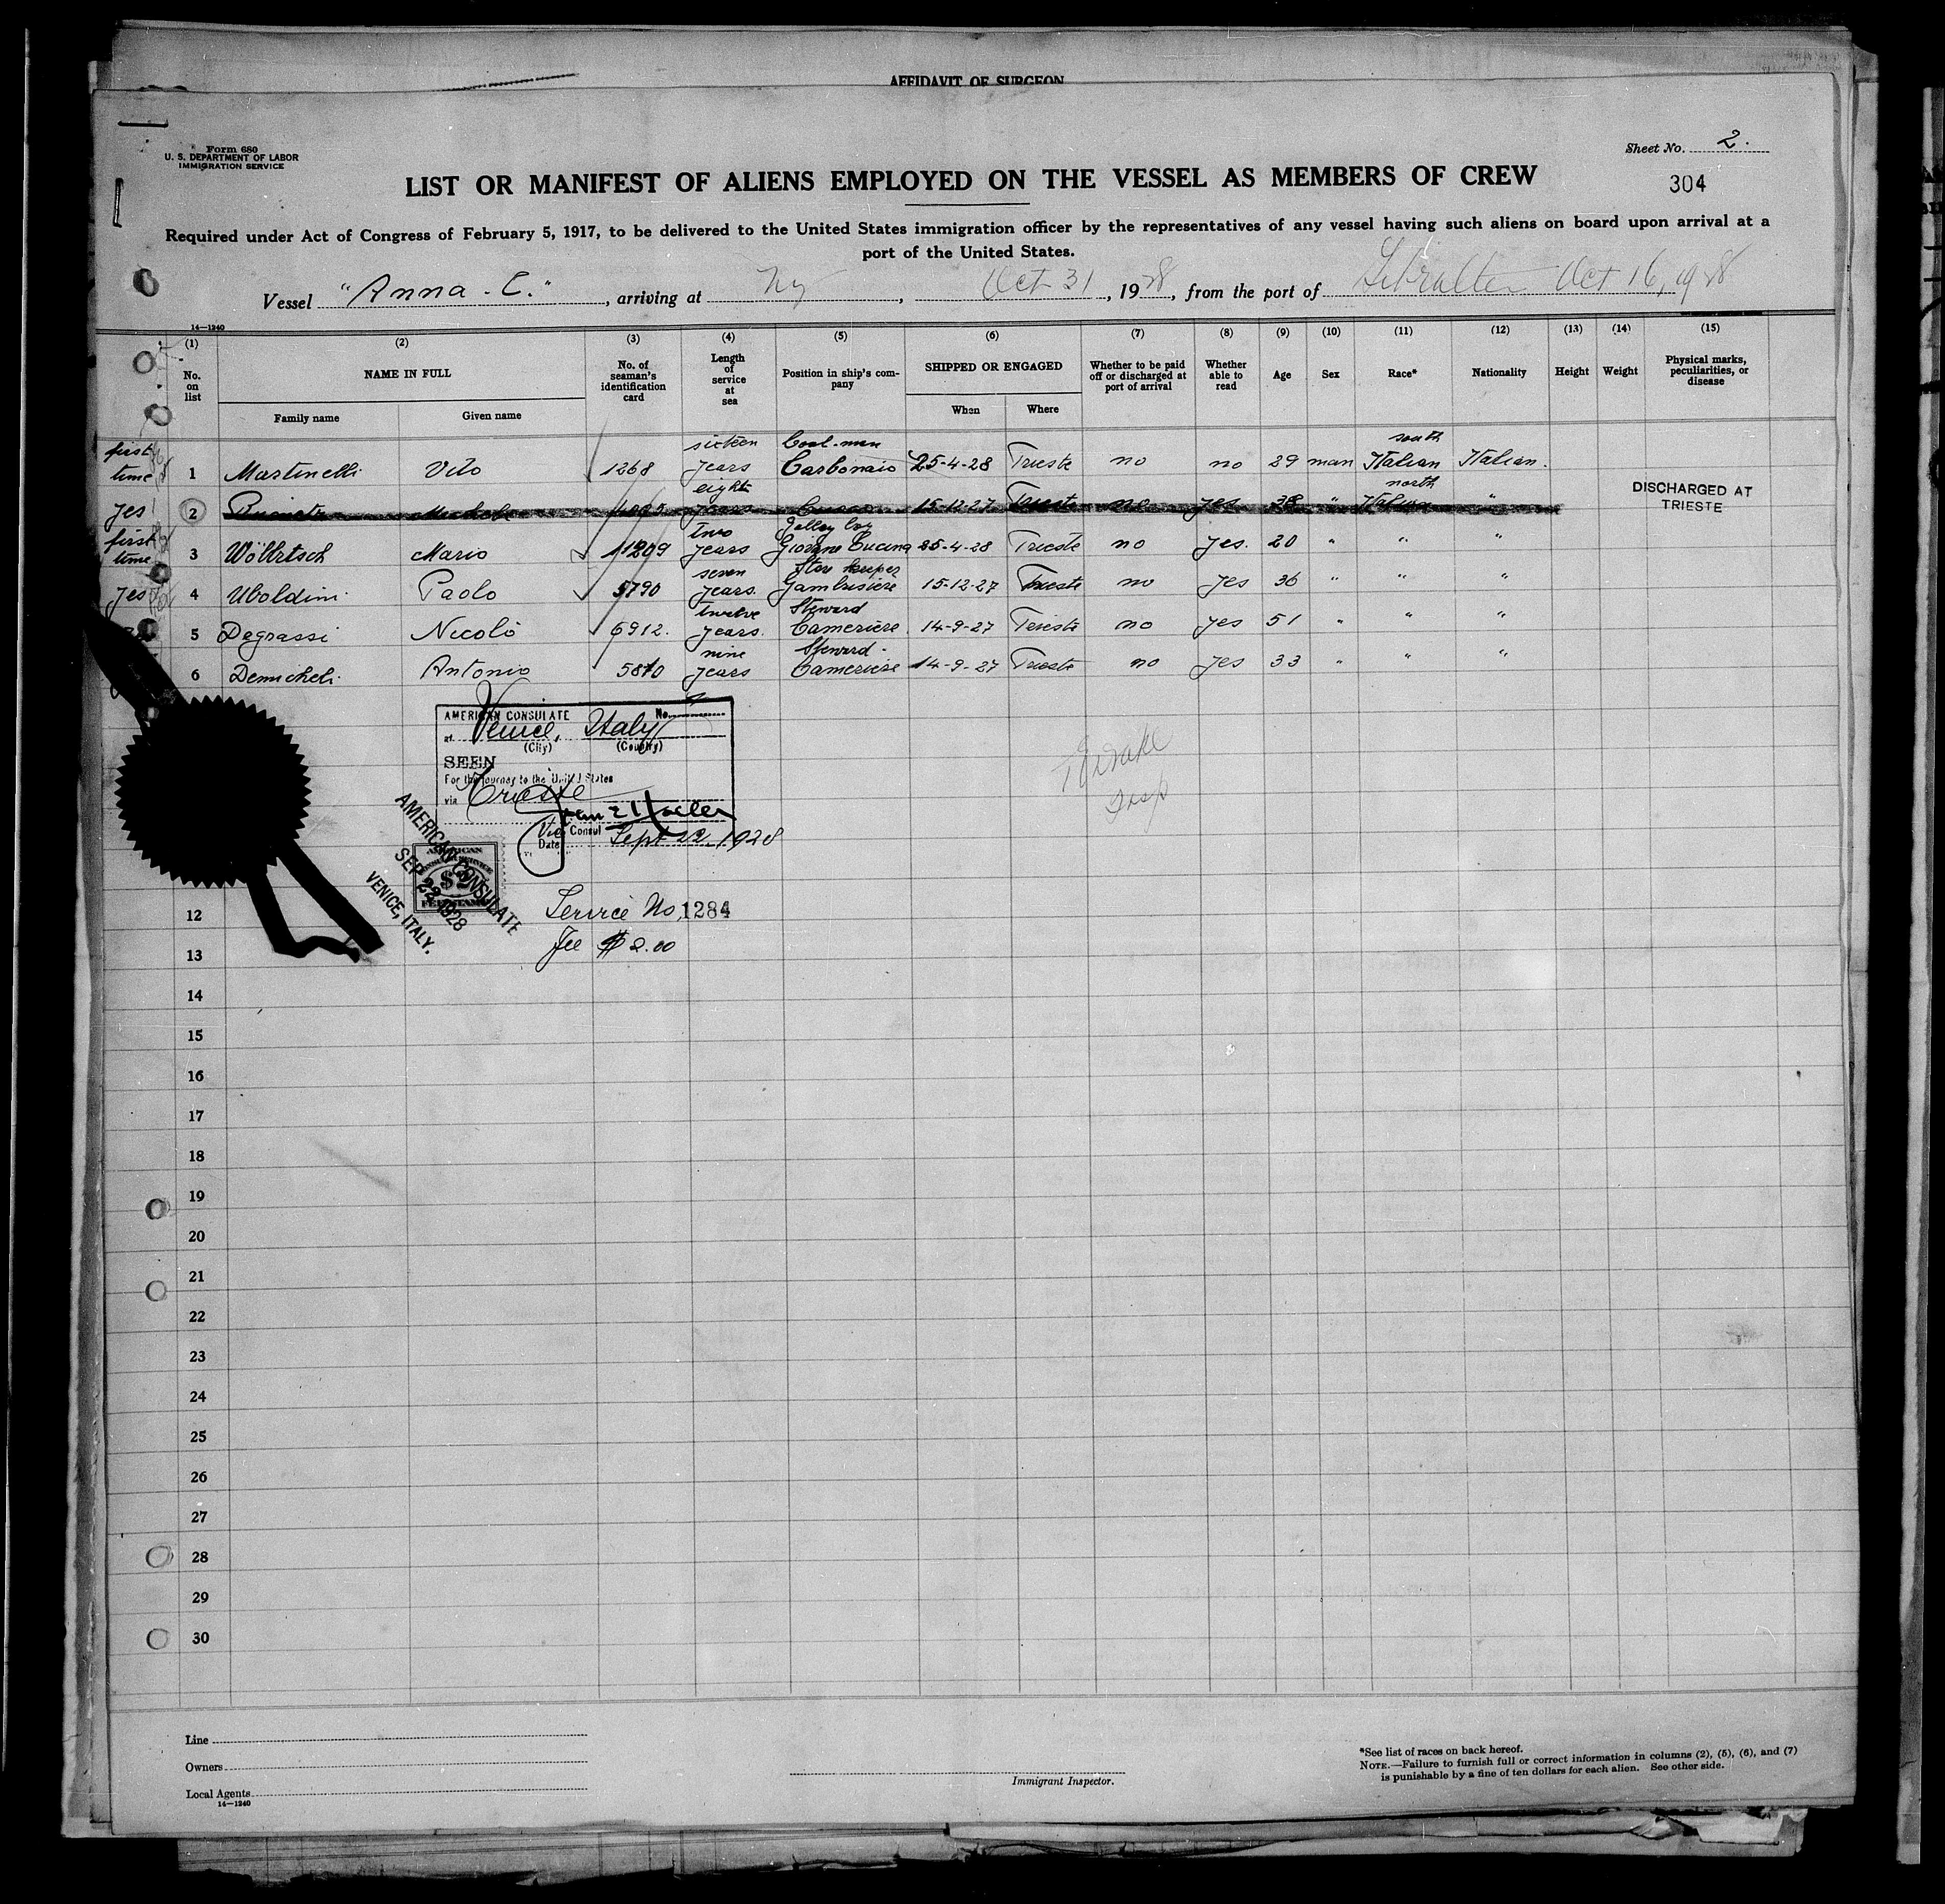 AFFIDAVIT OF SURGEON
Form 680
U. S. DEPARTMENT OF LABOR
IMMIGRATION SERVICE
Sheet No. 2.
LIST OR MANIFEST OF ALIENS EMPLOYED ON THE VESSEL AS MEMBERS OF CREW
304
Required under Act of Congress of February 5, 1917, to be delivered to the United States immigration officer by the representatives of any vessel having such aliens on board upon arrival at a
port of the United States.
Vessel "Anna - C.", arriving at Ny, Oct 31, 1928, from the port of Gibralter Oct 16, 1928
14—1240
(1) (2) (3) (4) (5) (6) (7) (8) (9) (10) (11) (12) (13) (14) (15)
No. on list
NAME IN FULL
Family name
Given name
No. of seaman's identification card
Length of service at sea
Position in ship's company
SHIPPED OR ENGAGED
When
Where
Whether to be paid off or discharged at port of arrival
Whether able to read
Age
Sex
Race*
Nationality
Height
Weight
Physical marks, peculiarities, or disease
first time 1 Martinelli Vito 1268 sixteen years Coal-man Carbonaio 25-4-28 Trieste no no 29 man south Italian Italian.
yes 2 eight years 15-12-27 Trieste no yes 38 " north Italian " DISCHARGED AT TRIESTE
first time 3 Wölbrtsch Mario 11209 two years Galley boy Giovane Cucina 25-4-28 Trieste no yes. 20 " " "
yes 4 Uboldini Paolo 5790 seven years. Store keeper Gambusiere 15-12-27 Trieste no yes 36 " " "
5 Degrassi Nicolò 6912. twelve years. Steward Cameriere 14-9-27 Trieste no yes 51 " " "
6 Demicheli Antonio 5810 nine years Steward - Cameriere 14-9-27 Trieste no yes 33 " " "
AMERICAN CONSULATE No.
at Venice, Italy
(City) (Country)
SEEN
For the journey to the United States
via Trieste
Vice Consul
Date Sept 22. 1928
AMERICAN CONSULATE
SEP 22 1928
VENICE, ITALY.
AMERICAN
CONSULAR SERVICE
$2
FEE STAMP
Service No. 1284
Fee $ 2.00
12
13
14
15
16
17
18
19
20
21
22
23
24
25
26
27
28
29
30
Line
Owners
Local Agents
14—1240
Immigrant Inspector.
*See list of races on back hereof.
NOTE.—Failure to furnish full or correct information in columns (2), (5), (6), and (7)
is punishable by a fine of ten dollars for each alien. See other side.